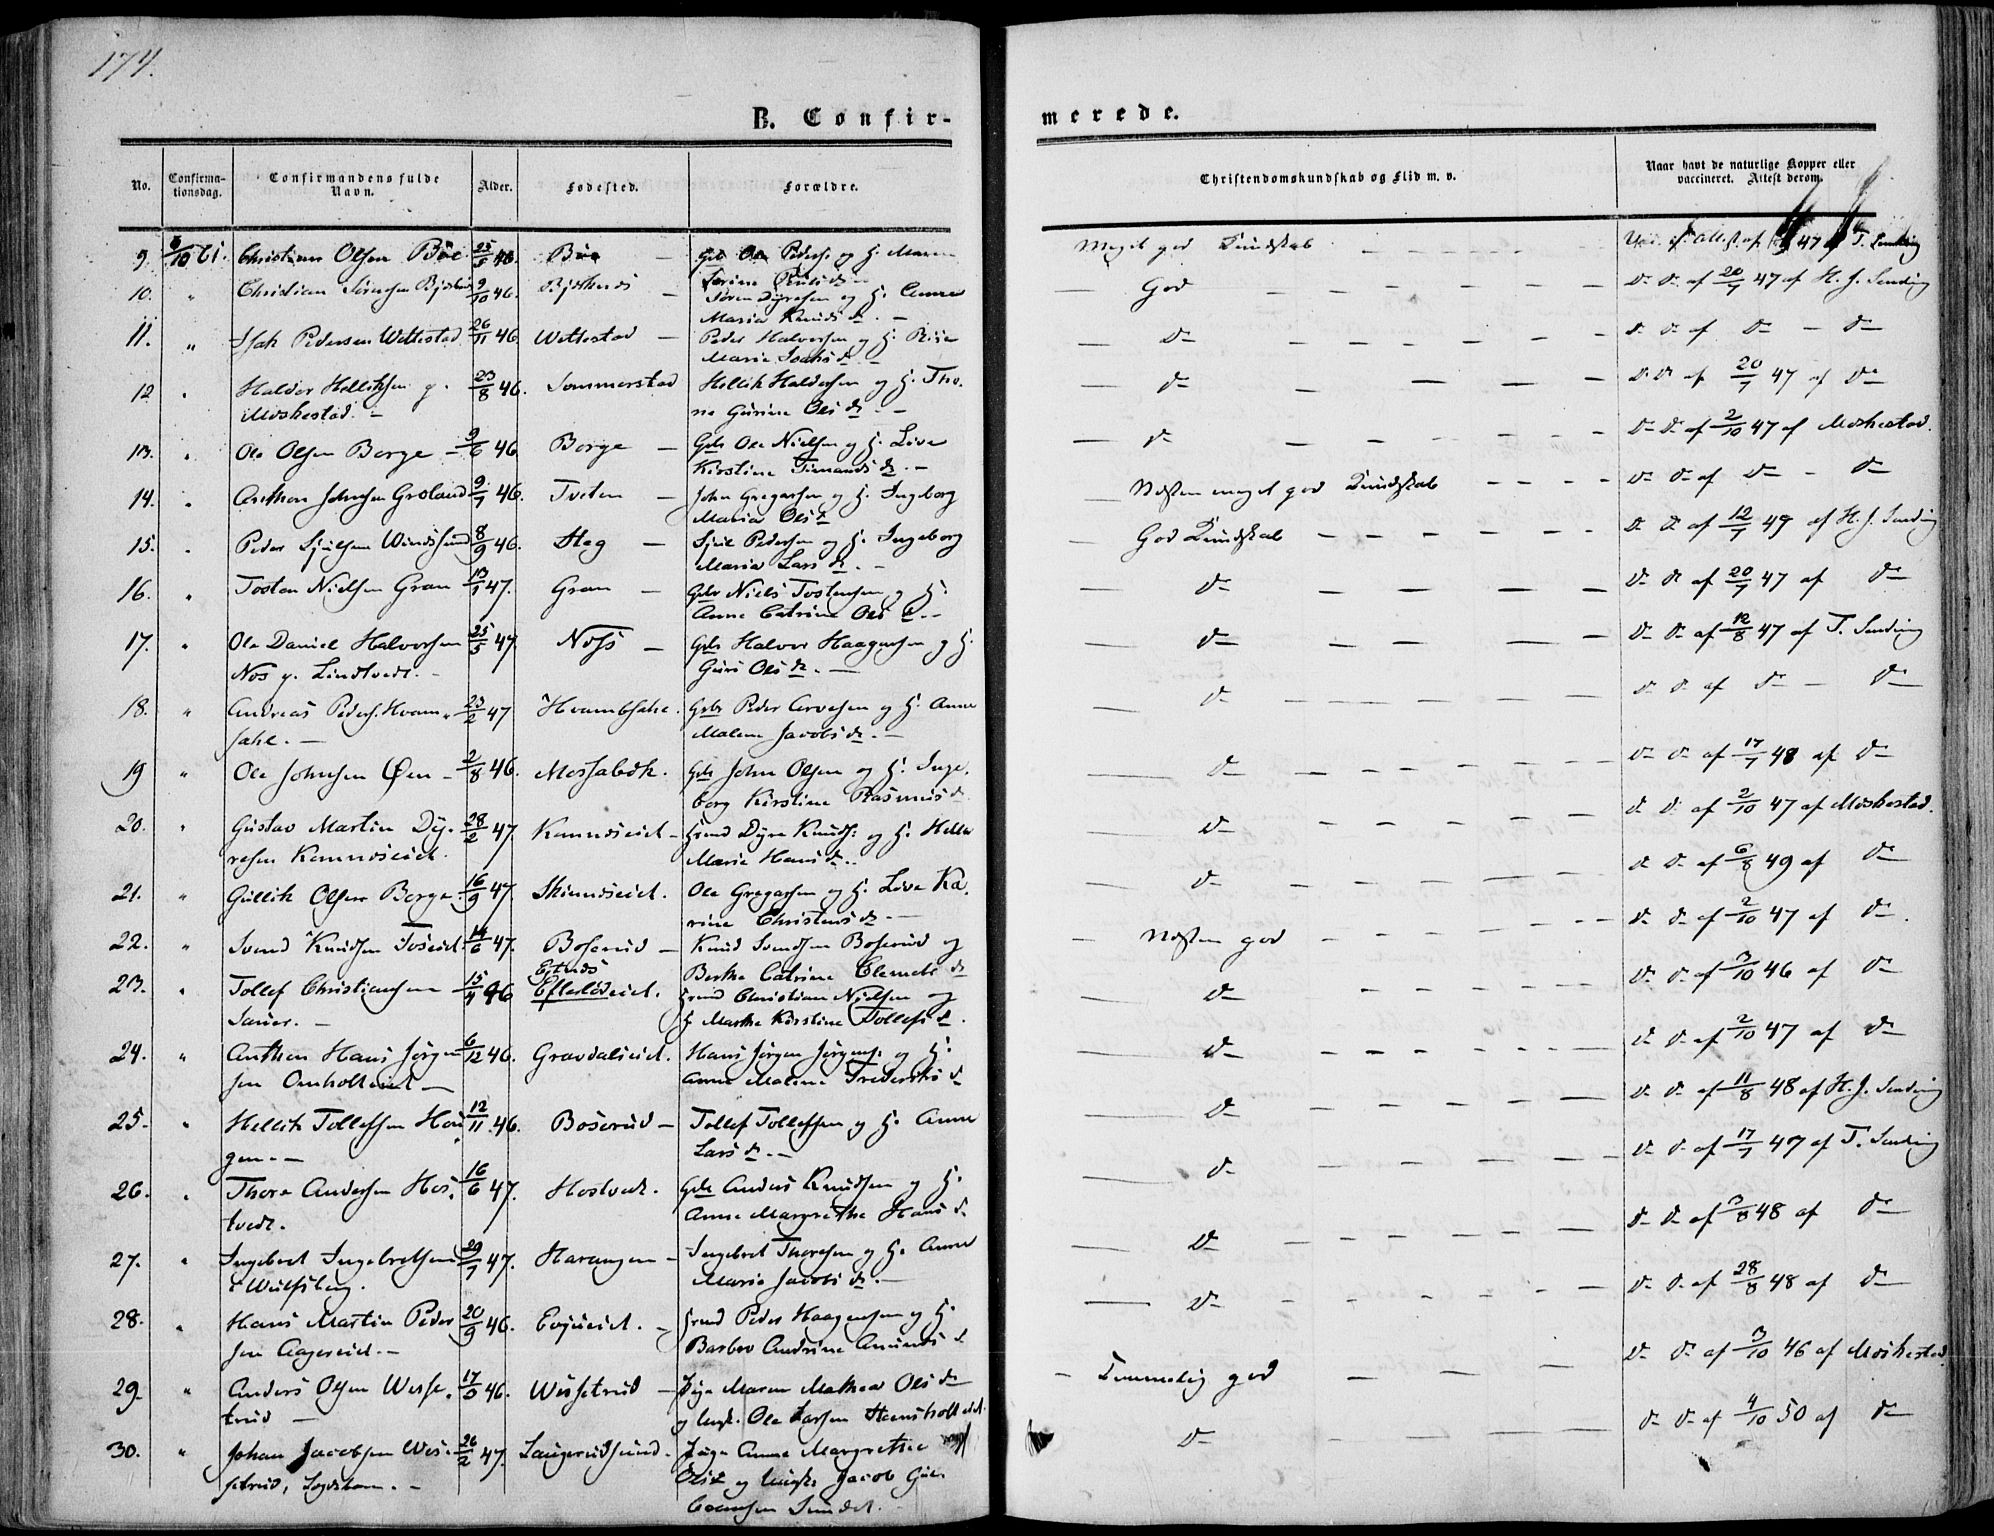 174.
B. Confir-
merede.
No.
Confirma-
tionsdag.
Confirmandens fulde
Navn.
Alder.
Fødested.
Forældre.
Christendomskundskab og Flid m. v.
Naar havt de naturlige Kopper eller
vaccineret. Attest derom.
9. 6/10 61. Christian Olsen Böe 46. Böe Gdb Ole Peders. og H. Maren
Meget god Kundskab 47 af T. Sending
10. " Christian Sörensen 9/10 46. Sören Dyresen og H. Anne
Maria Knudsdr. -
God Dr Dr af 20/7 47 af H. J. Sending
11. " Isak Pedersen Wettestad 26/11 46 Wettestad Peder Halvorsen og H.
Marie Isaksdr. -
Dr Dr Dr af Dr - Dr
12. " Haldor Helliksen p.
Moshestad. - 23/8 46. Sommerstad Hellik Haldorsen og H. Tho-
ne Gurine Olsdr. -
Dr Dr Dr af 20/7 47 af Dr
13. " Ole Olsen Borge 9/6 46 Borge Gdb Ole Nielsen og H. Live
Kirstine
Dr Dr Dr af 2/10 47 af Moshestad.
14. " Anthon Johnsen Grosland 9/7 46. Tveten John Gregarsen og H. Ingeborg
Maria Olsdr
Næsten meget god Kundskab Dr Dr af Dr - Dr
15. " Peder Sjulsen 8/9 46. Steg Sjul Pedersen og H. Ingeborg
Maria Larsdr. -
God Kundskab Dr Dr af 12/7 49 af H. J. Sending
16. " Tosten Nielsen Gran 13/1 47. Gran Gdb Niels Tostensen og H.
Anne Catrine Olsdr. -
Dr Dr Dr af 20/7 47 af Dr
17. " Ole Daniel Halvorsen
Nos p. Lindtvedt. - 25/5 47. Nos Gdb Halvor Haagensen og H.
Guri Olsdr. -
Dr Dr Dr af 12/8 47 af T. Sending
18. " Andreas Peders. Hvam-
sahl. - 23/2 47 Hvambsahl. Gdb Peder Arvesen og H. Anne
Malene Jacobsdr. -
Dr Dr Dr af Dr - Dr
19 " Ole Johnsen Øen 2/8 46. Mossabæk. Gdb John Olsen og H. Inge-
borg Kirstine Rasmusdr
Dr Dr Dr af 17/7 48 af Dr
20. " Gustav Martin Dy-
resen Kamnæseiet. 28/2 47. Kamnæseiet Hmd Dyre Knuds. og H. Helle
Marie Hansdr.
Dr Dr Dr af 2/10 47 af Moshestad.
21. " Gullik Olsen Borge. 16/9 47. Skinnæseiet. Ole Gregarsen og H. Live Ka-
rine Christensdr. -
Dr Dr Dr af 6/8 49 af Dr
22. " Svend Knudsen 14/6 47. Boserud Knud Svendsen Boserud og
Berthe Catrine Clemetsdr
Næsten god Dr Dr af 2/10 47 af Dr.
23. " Tollef Christiansen
Sauer. - 15/4 46 Hmd Christian Nielsen og
H. Marthe Kirstine Tollefsdr.
Dr Dr Dr af 3/10 46 af Dr
24. " Anthon Hans Jörgen-
sen Omholteiet 6/12 46. Gravdalseiet. Hans Jörgen Jörgens. og H.
Anne Malene Frederiksdr
Dr Dr Dr af 2/10 47 af Dr
25. " Hellik Tollefsen Hau-
gen. - 12/11 46. Boserud Tollef Tollefsen og H. Anne
Larsdr. -
Dr Dr Dr af 11/8 48 af H. J. Sending
26. " Thore Andersen Hos-
tvedt. 16/6 47. Hostvedt. Gdb Anders Knudsen og H.
Anne Margrethe Hansdr
Dr Dr Dr af 17/7 47 af T. Sending
27. " Ingebret Ingebretsen
Wulfsberg. 29/7 47. Harangen Ingebret Thoresen og H. Anne
Marie Jacobsdr. -
Dr Dr Dr af 3/8 48 af Dr
28. " Hans Martin Peder-
sen Aagereiet. - 20/9 46. Evjueiet. Hmd Peder Haagensen og H.
Barbro Andrine Amundsdr
Dr Dr Dr af 28/8 48 af Dr
29. " Anders Olsen Wesse-
trud 46. Wessetrud Pige Maren Mathea Olsdr
og Ungk. Ole Larsen
Temmelig god Dr Dr af 3/10 46 af Moshestad.
30. " Johan Jacobsen Wes-
setrud, Lægdsbarn. - 26/2 47. Langerudsund. Pige Anne Margrethe
Olsdr og Ungk. Jacob Gul-
brandsen Sundet.
Dr Dr Dr af 4/10 50 af Dr